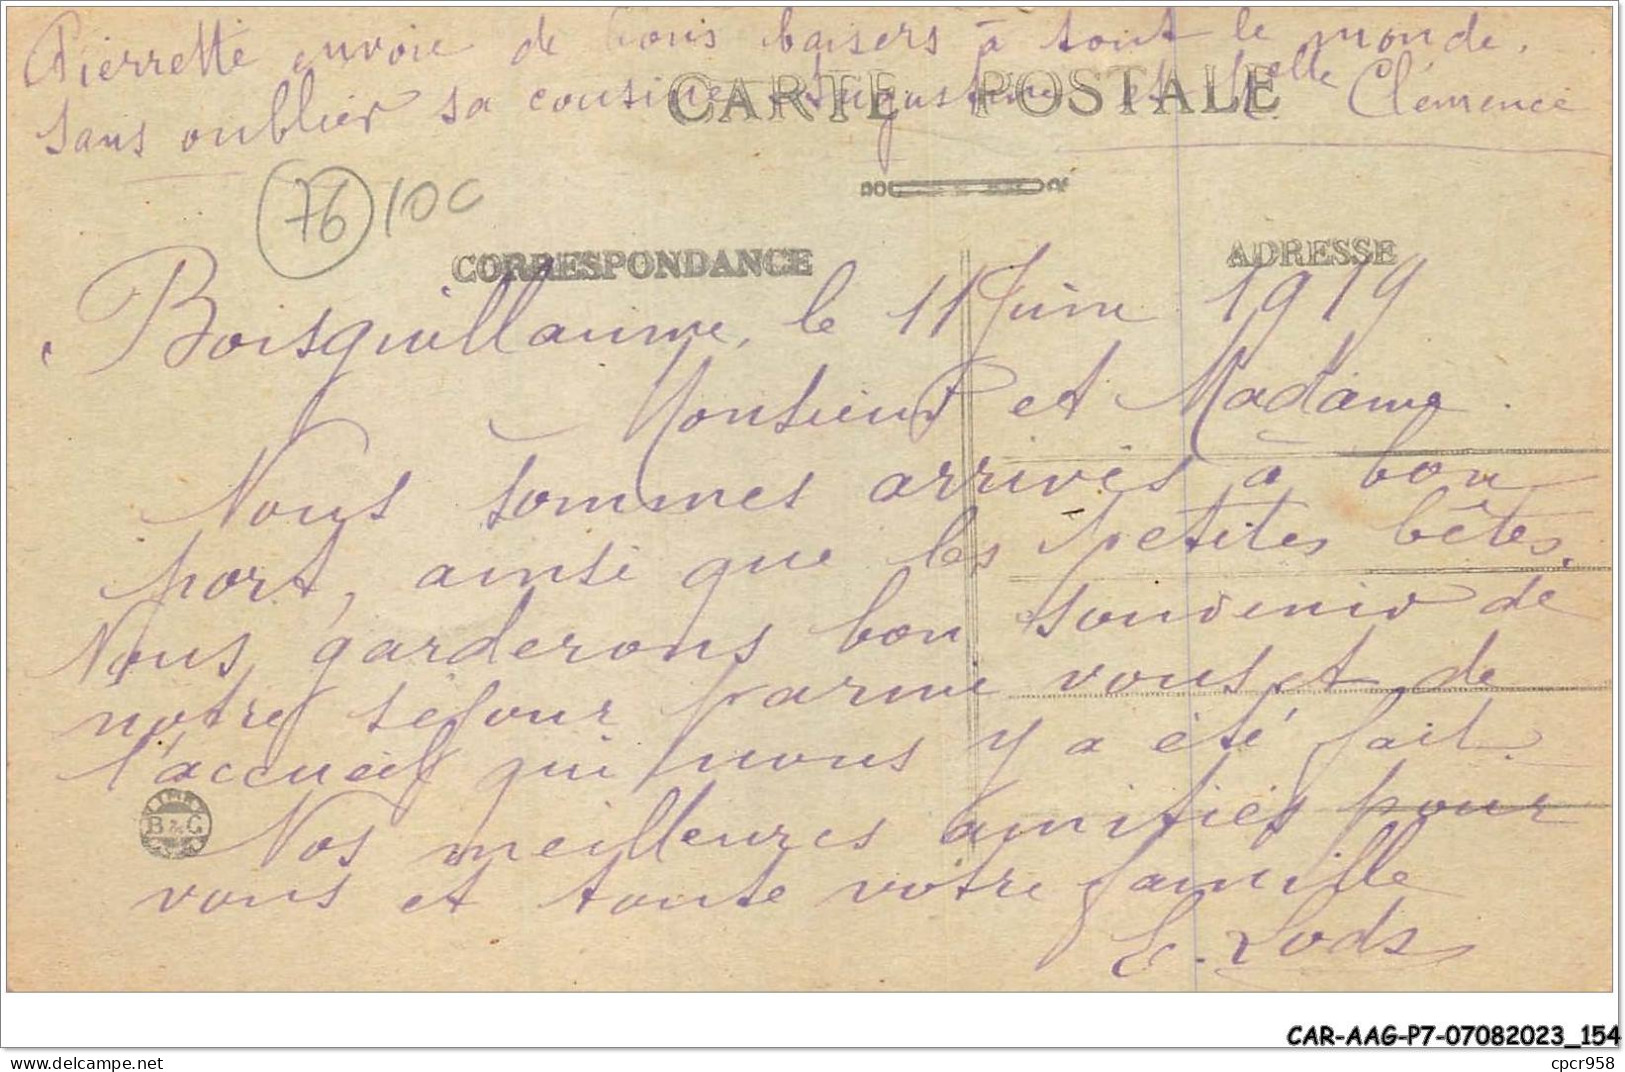 Pierrette envoie de bons baisers à tout le monde,
sans oublier sa cousine Augustine et Melle Clémence
CARTE POSTALE
76 10C
CORRESPONDANCE
ADRESSE
Boisguillaume, le 11 Juin 1919
Monsieur et Madame
Nous sommes arrivés à bon
port, ainsi que les petites bêtes.
Nous garderons bon souvenir de
notre séjour parmi vous et de
l'accueil qui nous y a été fait.
Nos meilleures amitiés pour
vous et toute votre famille
E. Lods
B & G
CAR-AAG-P7-07082023_154
delcampe.net
cpcr958